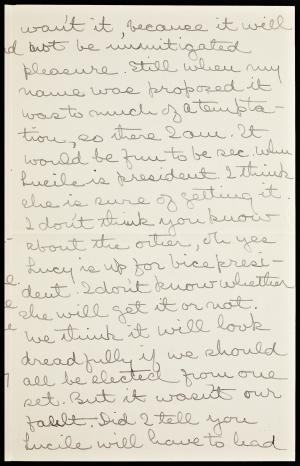 wan't it, because it will
not be unmitigated
pleasure. Still when my
name was proposed it
was to much of a tempta-
tion, so there I am. It
would be fun to be sec. when
Lucile is president. I think
she is sure of getting it.
I don't think you know
about the other, oh yes
Lucy is up for vice presi-
dent. I don't know whether
she will get it or not.
We think it will look
dreadfully if we should
all be elected from one
set. But it wasn't our
fault. Did I tell you
Lucile will have to lead